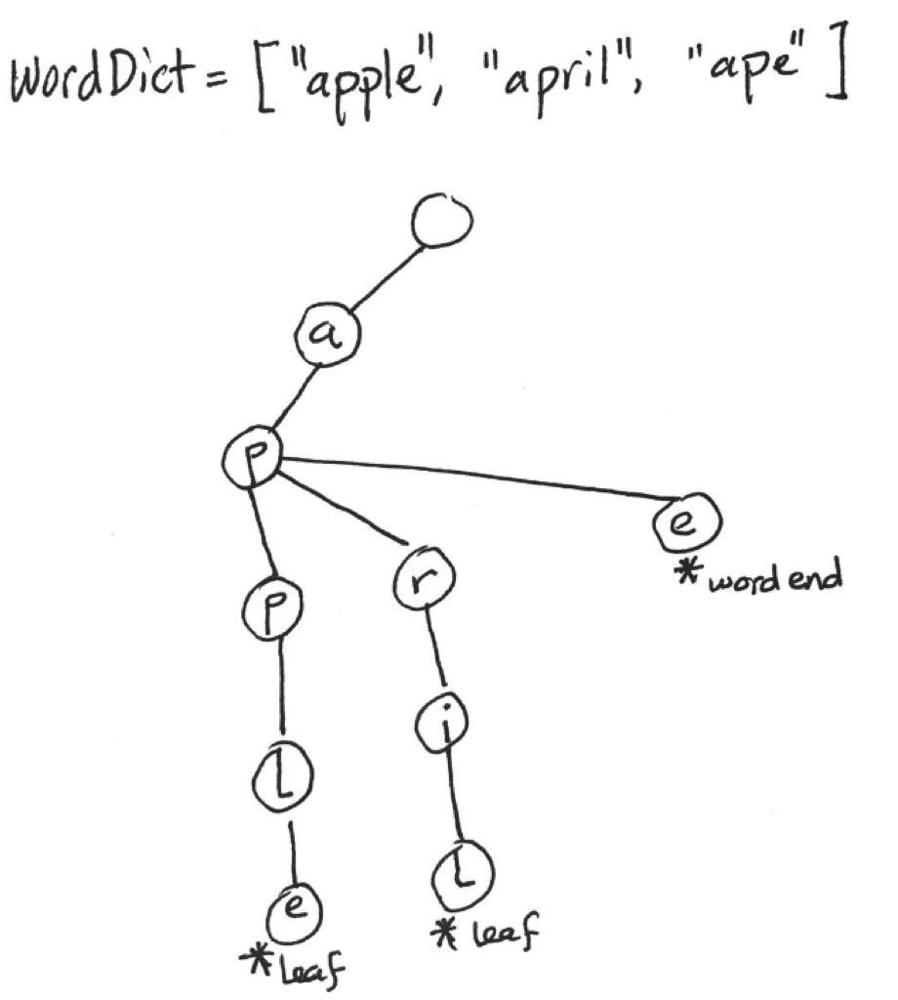 WordDict = ["apple", "april", "ape"]
a
P
e
* word end
r
P
i
L
L
* leaf
e
* Leaf